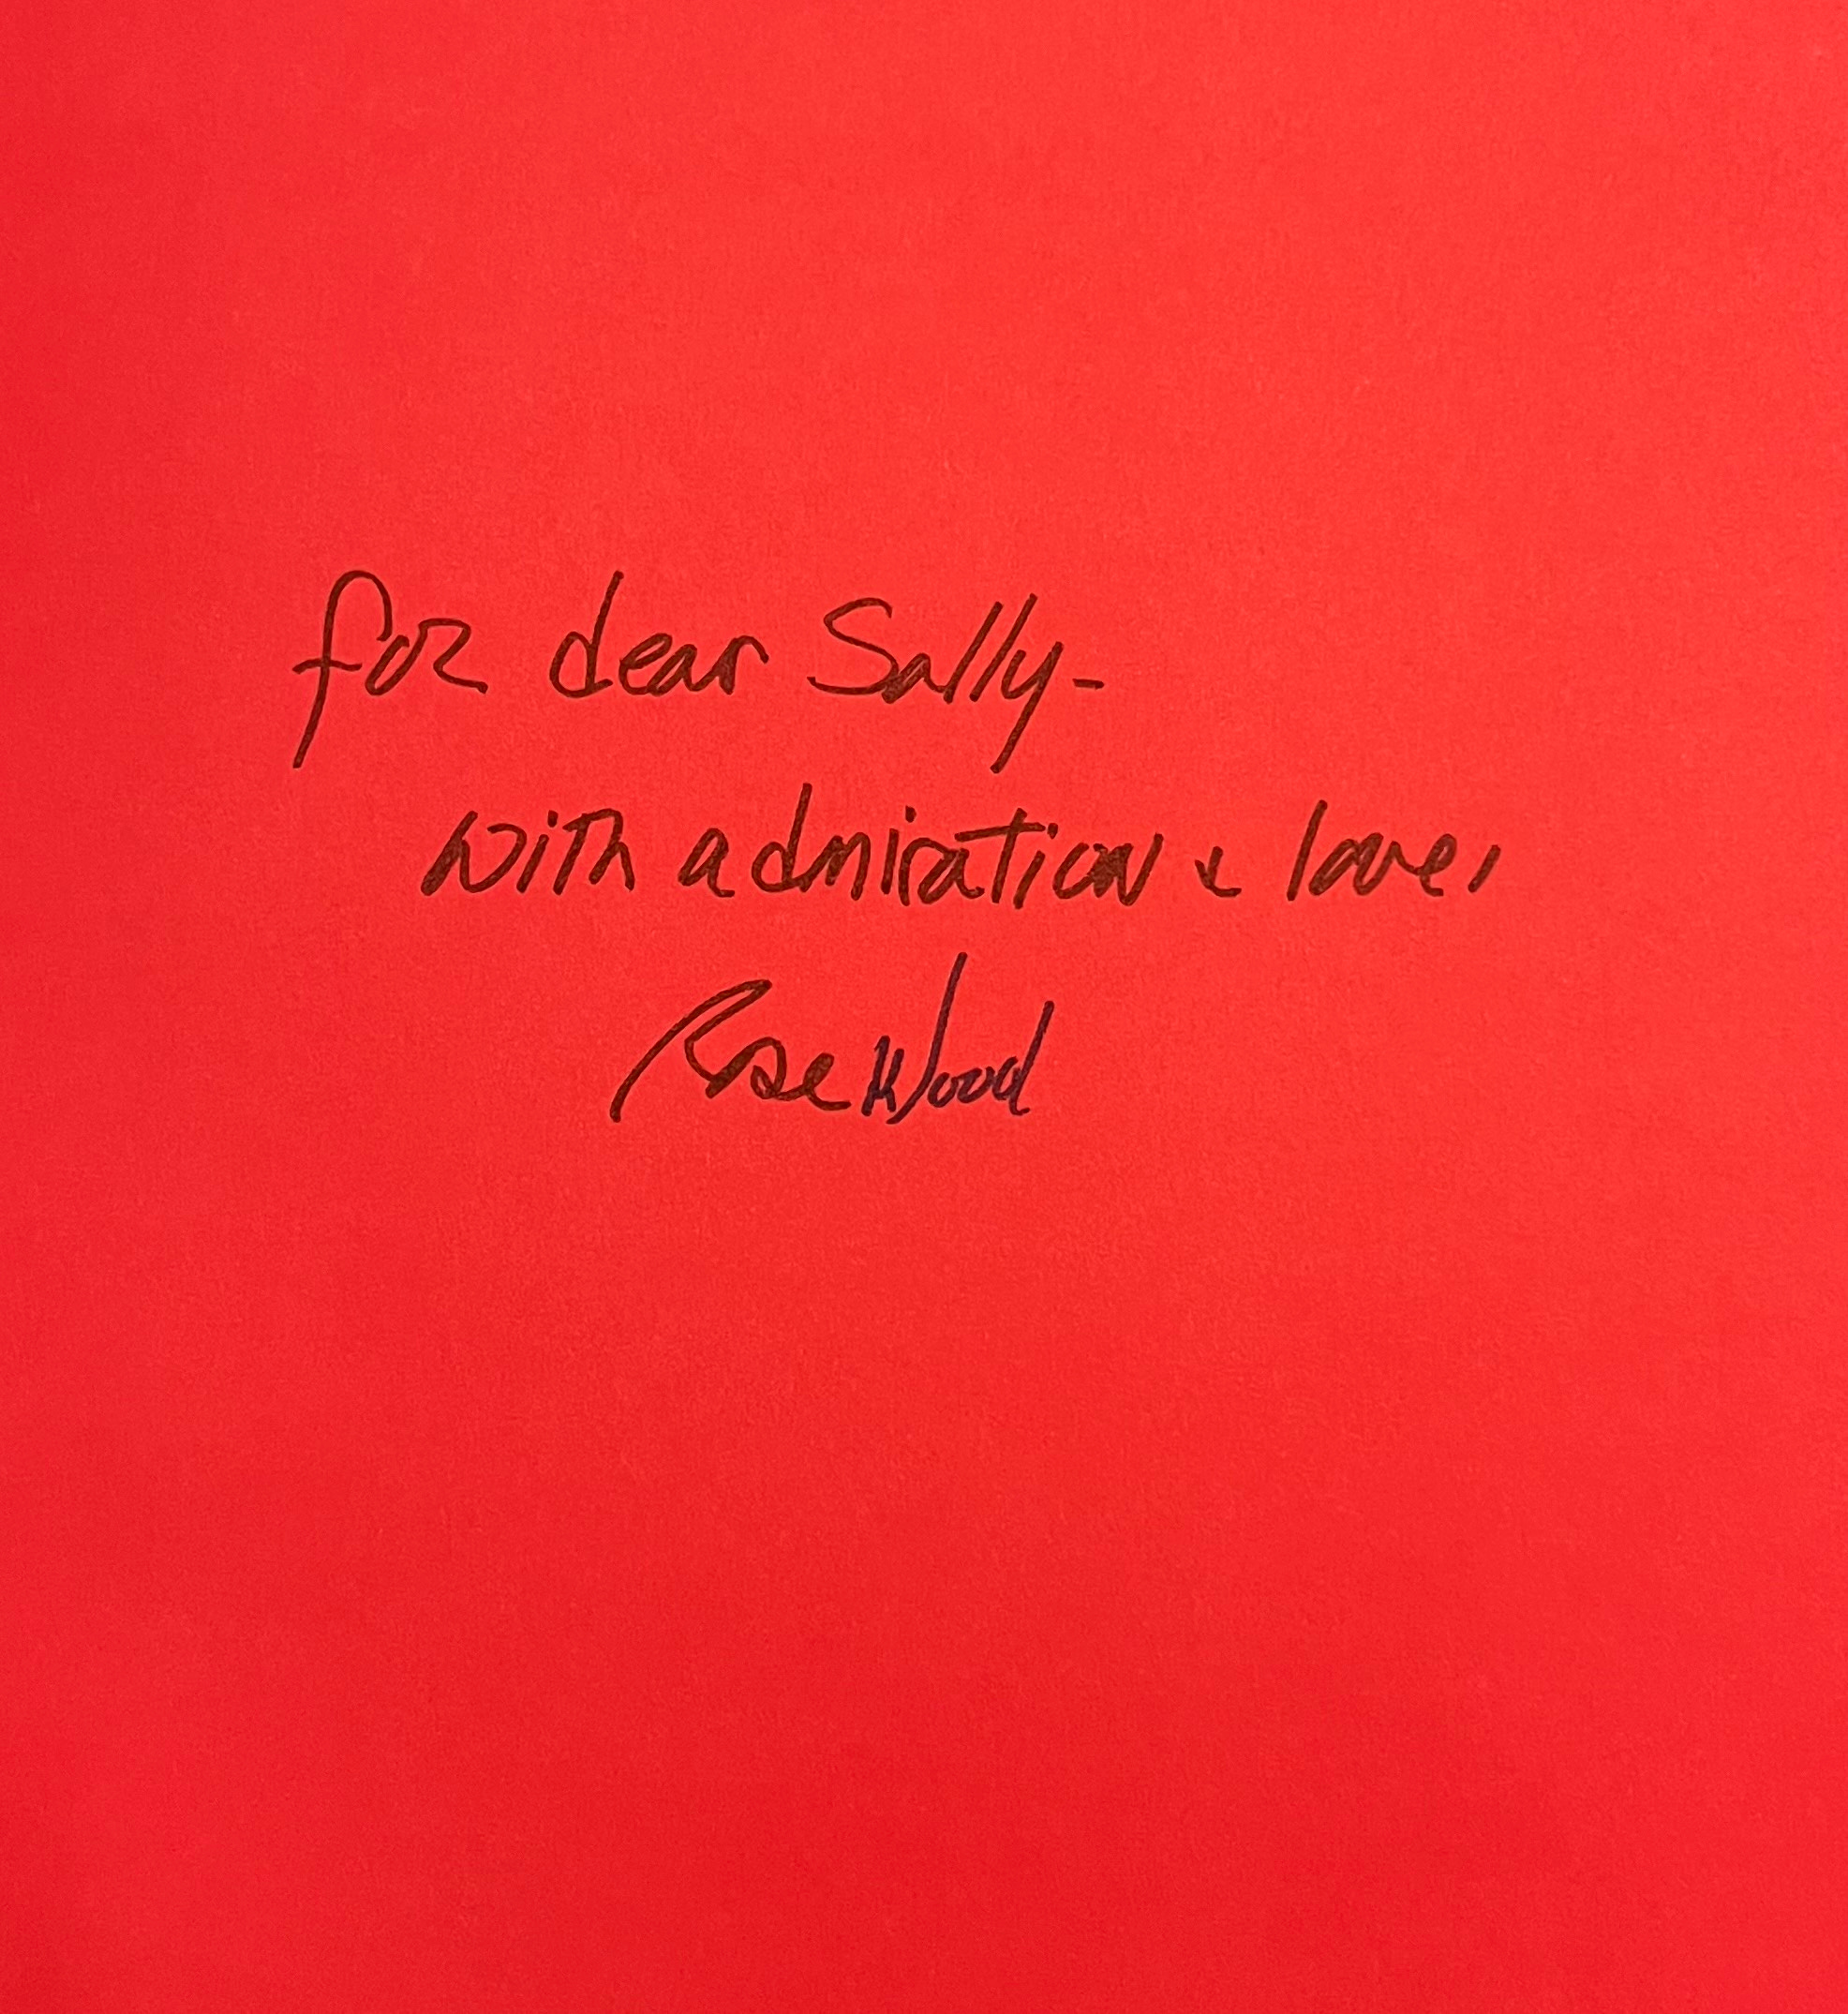 for dear Sally-
with admiration & love,
Rose Wood